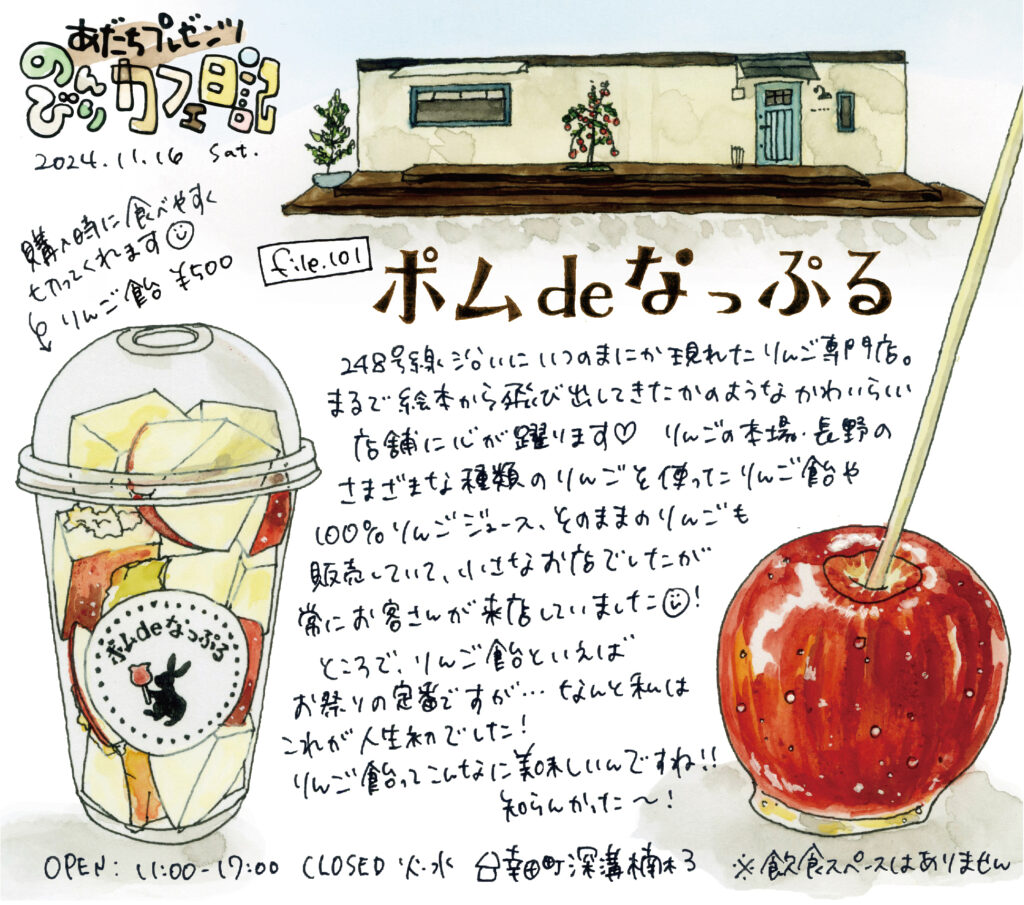 あだちプレゼンツ
のんびりカフェ日記
2024.11.16 Sat.
購入時に食べやすく
切ってくれます
りんご飴 ¥500
file.101
ポムdeなっぷる
248号線沿いにいつのまにか現れたりんご専門店。
まるで絵本から飛び出してきたかのようなかわいらしい
店舗に心が躍ります♡ りんごの本場・長野の
さまざまな種類のりんごを使ったりんご飴や
100%りんごジュース、そのままのりんごも
販売していて、小さなお店でしたが
常にお客さんが来店していました☺!
ところで、りんご飴といえば
お祭りの定番ですが…なんと私は
これが人生初でした!
りんご飴ってこんなに美味しいんですね!!
知らんかった〜!
ポムdeなっぷる
OPEN: 11:00-17:00 CLOSED 火・水 幸田町深溝楠林3 ※飲食スペースはありません